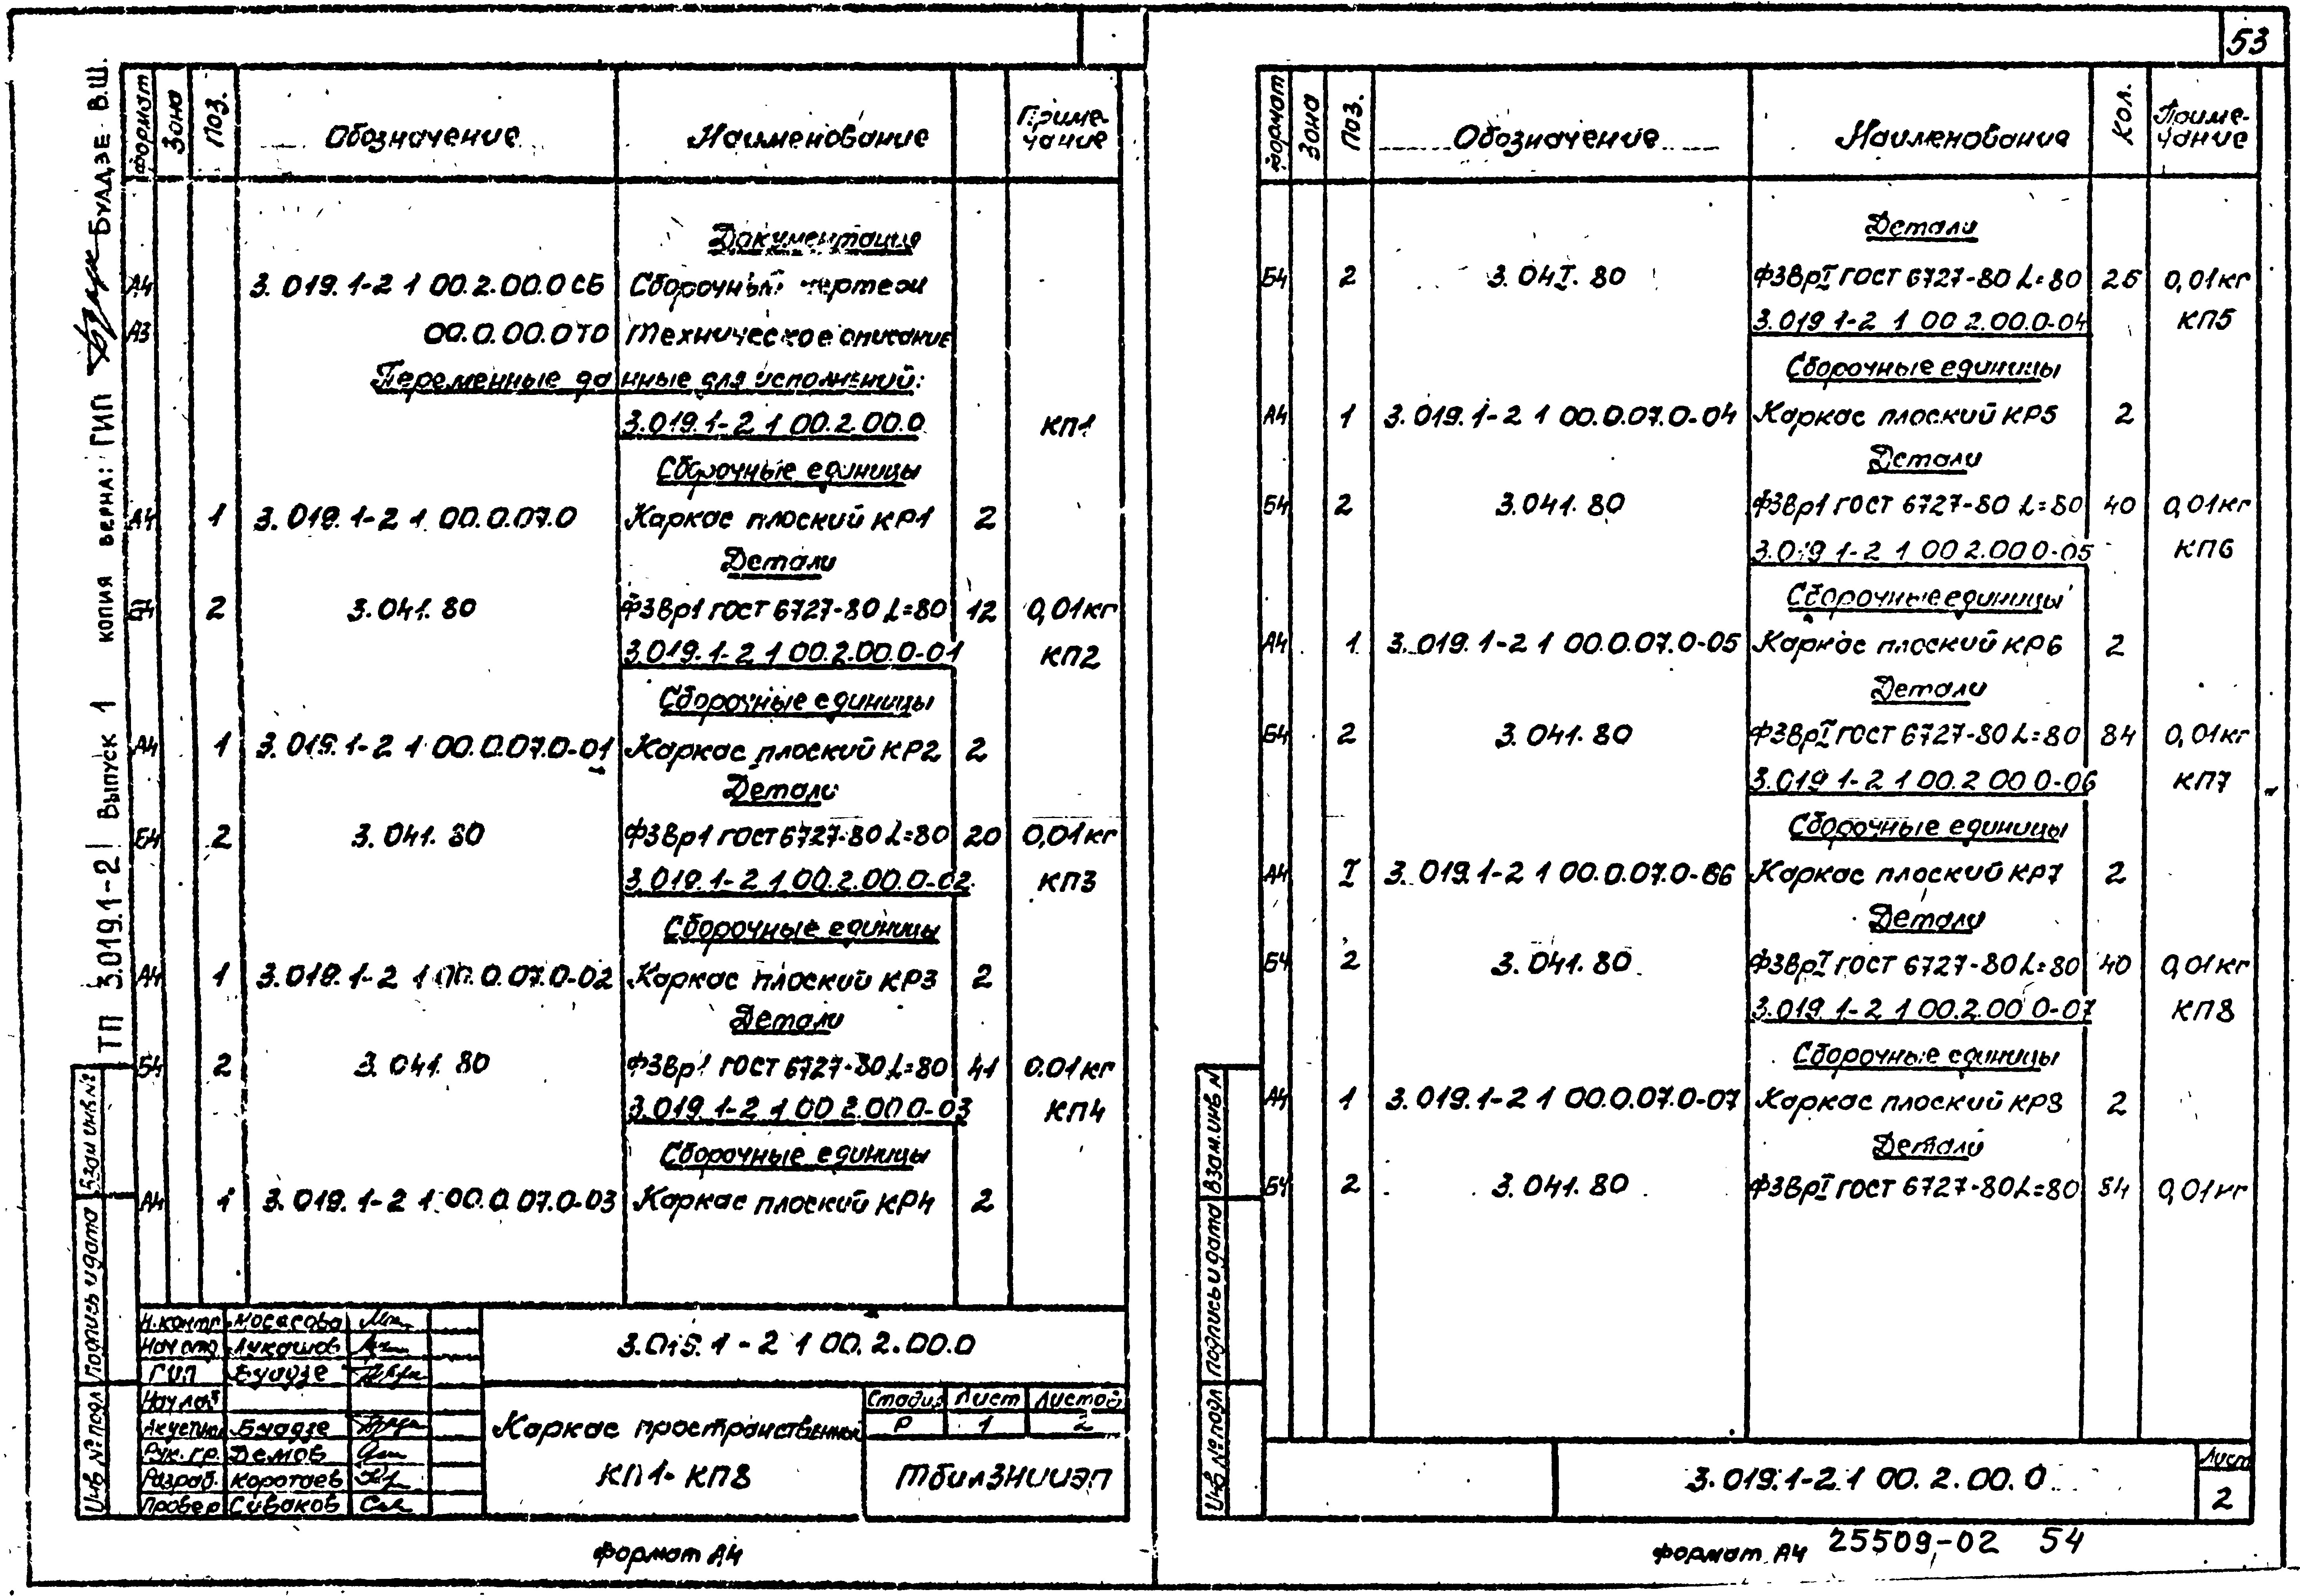 53
ТП 3.019.1-2 Выпуск 1 копия верна: ГИП Буадзе В.Ш.
Формат Зона Поз. Обозначение Наименование Примечание
Документация
А4 3.019.1-2 1 00.2.00.0 СБ Сборочный чертеж
А3 00.0.00.0 ТО Техническое описание
Переменные данные для исполнений:
3.019.1-2 1 00.2.00.0 КП1
Сборочные единицы
А4 1 3.019.1-2 1 00.0.07.0 Каркас плоский КР1 2
Детали
Б4 2 3.041.80 Ф3Вр1 ГОСТ 6727-80 L=80 12 0,01кг
3.019.1-2 1 00.2.00.0-01 КП2
Сборочные единицы
А4 1 3.019.1-2 1 00.0.07.0-01 Каркас плоский КР2 2
Детали
Б4 2 3.041.80 Ф3Вр1 ГОСТ 6727-80 L=80 20 0,01кг
3.019.1-2 1 00.2.00.0-02 КП3
Сборочные единицы
А4 1 3.019.1-2 1 00.0.07.0-02 Каркас плоский КР3 2
Детали
Б4 2 3.041.80 Ф3Вр1 ГОСТ 6727-80 L=80 41 0.01кг
3.019.1-2 1 00 2.00 0-03 КП4
Сборочные единицы
А4 1 3.019.1-2 1 00.0.07.0-03 Каркас плоский КР4 2
Взам инв №
Подпись и дата
Инв № подл
Н.контр. Мосесова
Нач отд Лукашов
ГИП Буадзе
Нач.лаб
Акустик Буадзе
Рук.гр. Демов
Разраб. Коротаев
Провер Сиваков
3.019.1-2 1 00.2.00.0
Каркас пространственный
КП1-КП8
Стадия Лист Листов
Р 1 2
ТбилЗНИИЭП
Формат А4
Формат Зона Поз. Обозначение Наименование Кол. Примечание
Детали
Б4 2 3.04I.80 Ф3ВрI ГОСТ 6727-80 L=80 26 0,01кг
3.019 1-2 1 00 2.00.0-04 КП5
Сборочные единицы
А4 1 3.019.1-2 1 00.0.07.0-04 Каркас плоский КР5 2
Детали
Б4 2 3.041.80 Ф3Вр1 ГОСТ 6727-80 L=80 40 0,01кг
3.019 1-2 1 00 2.00 0-05 КП6
Сборочные единицы
А4 1 3.019.1-2 1 00.0.07.0-05 Каркас плоский КР6 2
Детали
Б4 2 3.041.80 Ф3ВрI ГОСТ 6727-80 L=80 84 0,01кг
3.019 1-2 1 00.2 00 0-06 КП7
Сборочные единицы
А4 I 3.019.1-2 1 00.0.07.0-06 Каркас плоский КР7 2
Детали
Б4 2 3.041.80 Ф3ВрI ГОСТ 6727-80 L=80 40 0,01кг
3.019.1-2 1 00.2.00 0-07 КП8
Сборочные единицы
А4 1 3.019.1-2 1 00.0.07.0-07 Каркас плоский КР8 2
Детали
Б4 2 3.041.80 Ф3ВрI ГОСТ 6727-80 L=80 54 0,01кг
Взам.инв N
Подпись и дата
Инв № подл
3.019.1-2 1 00.2.00.0
Лист
2
Формат А4 25509-02 54